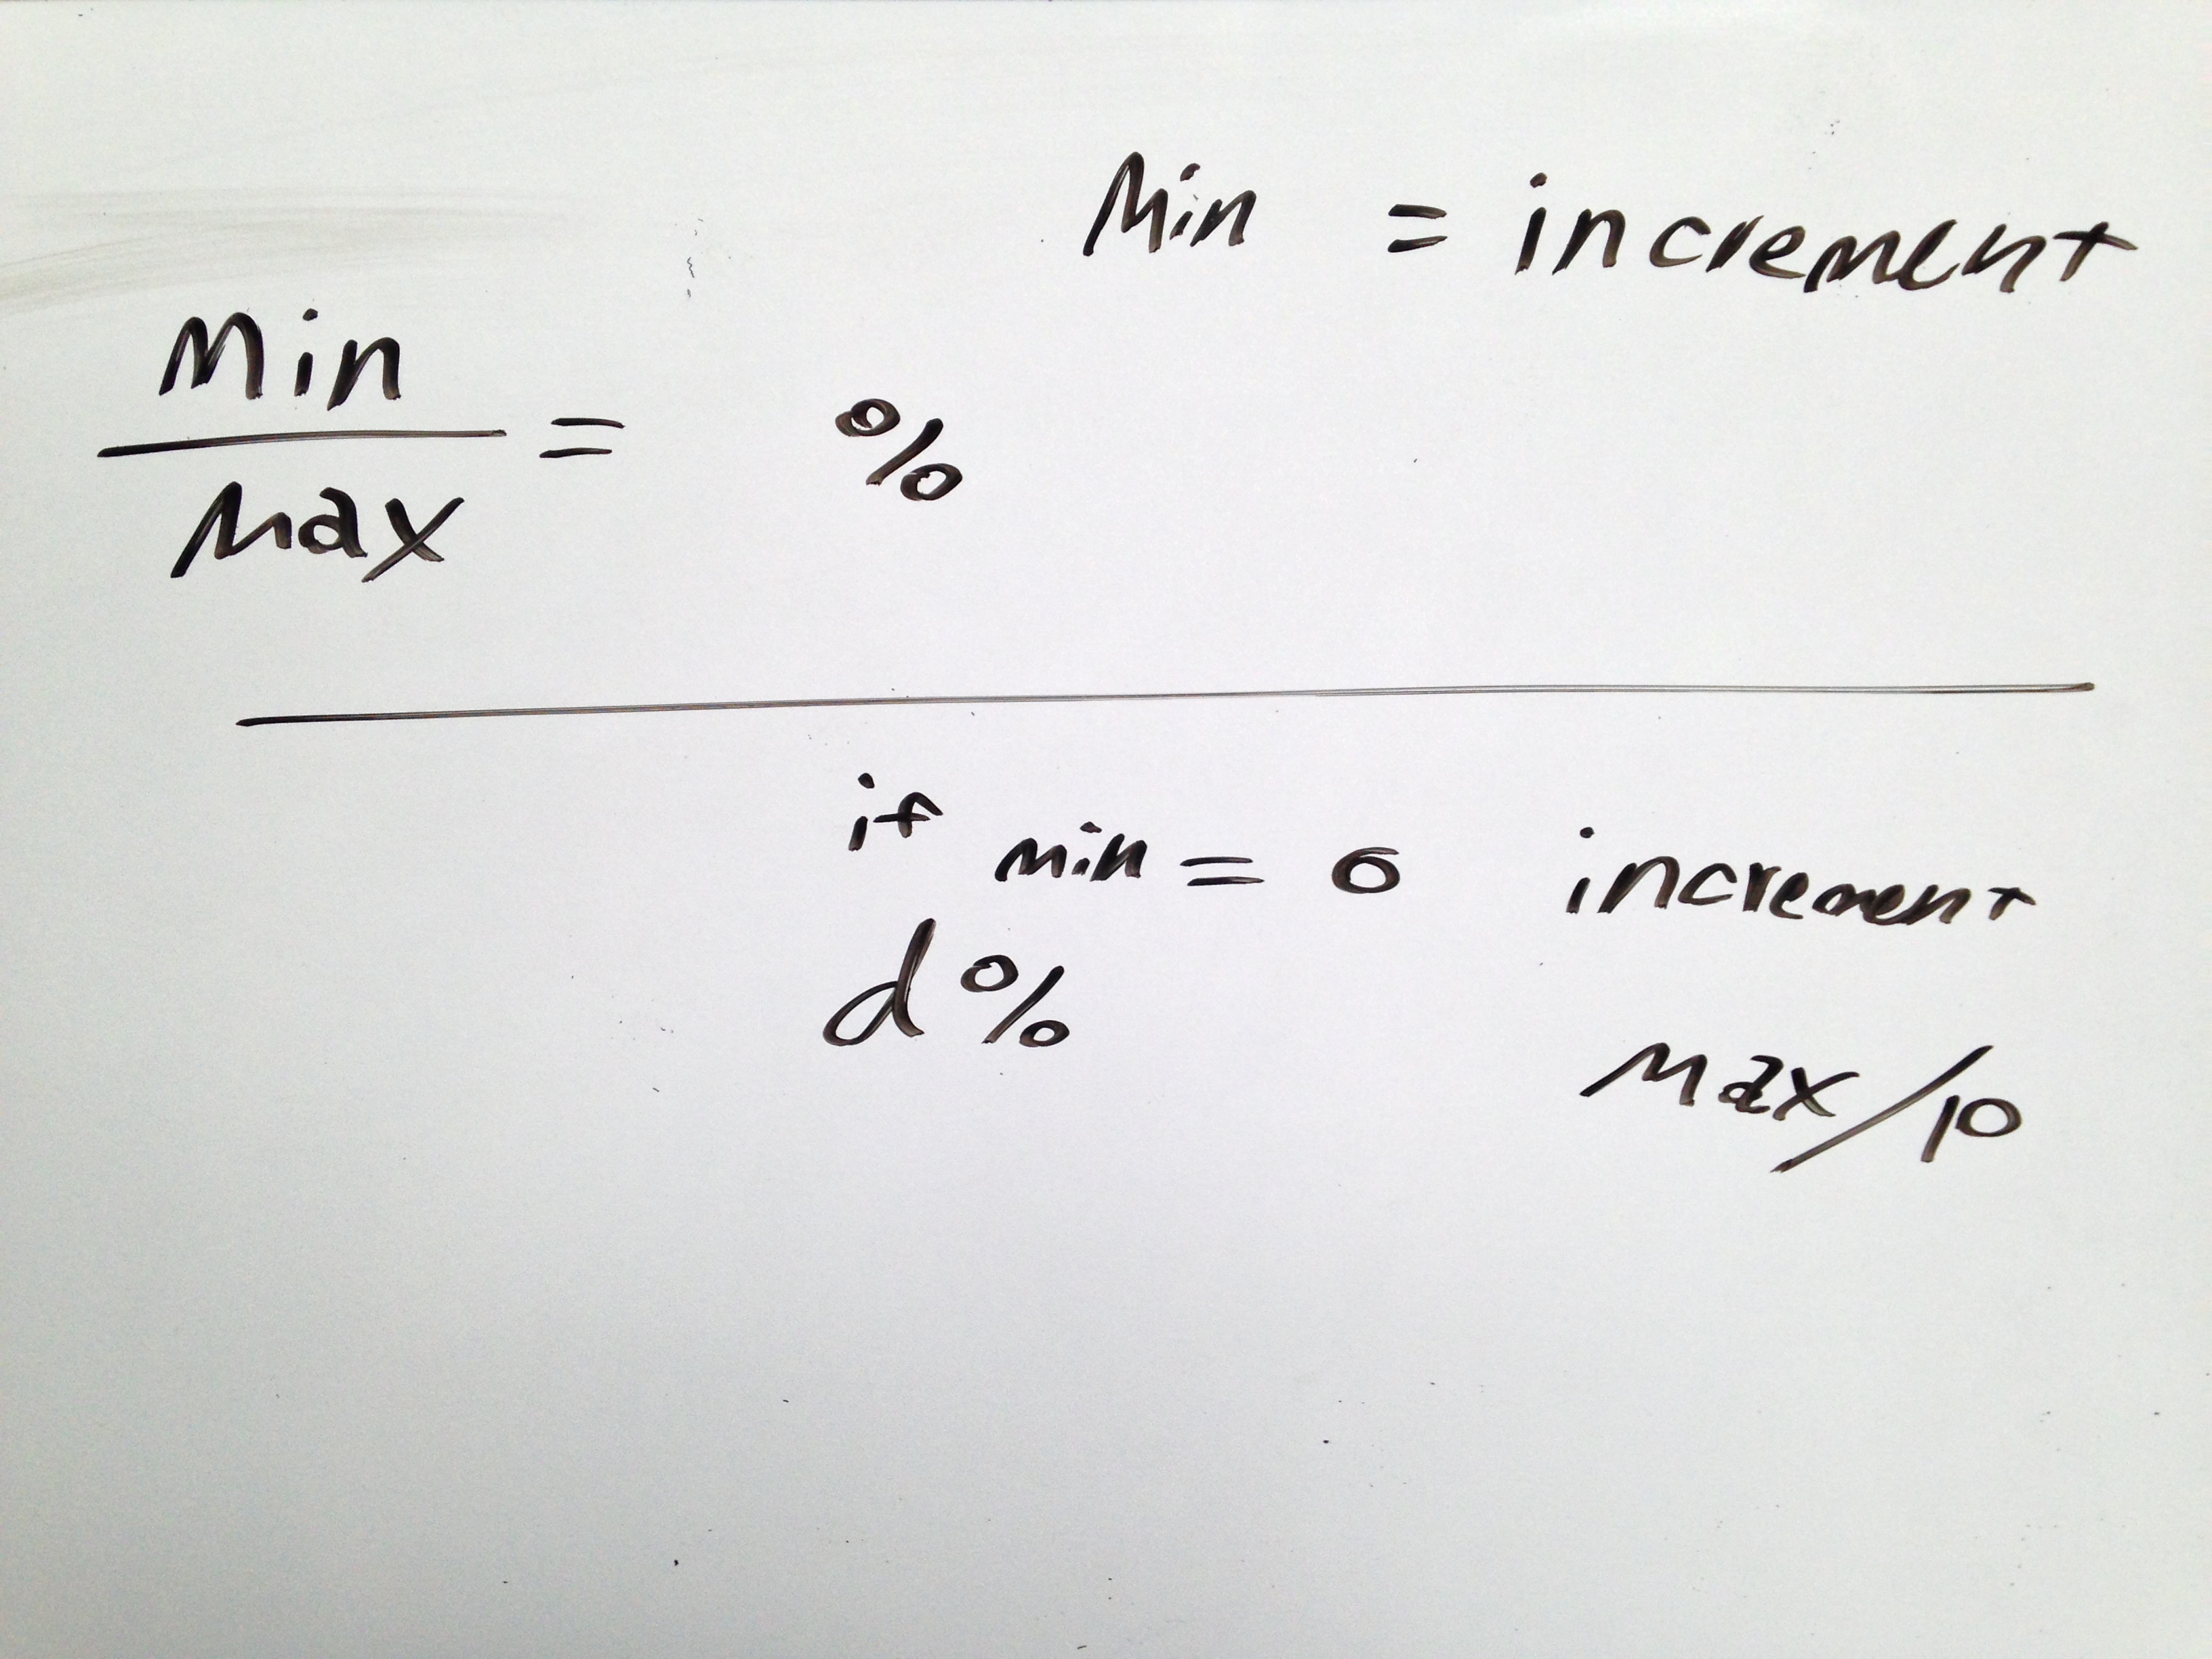 Min = increment
Min
Max
= %
if min = 0 increment
d% Max/10